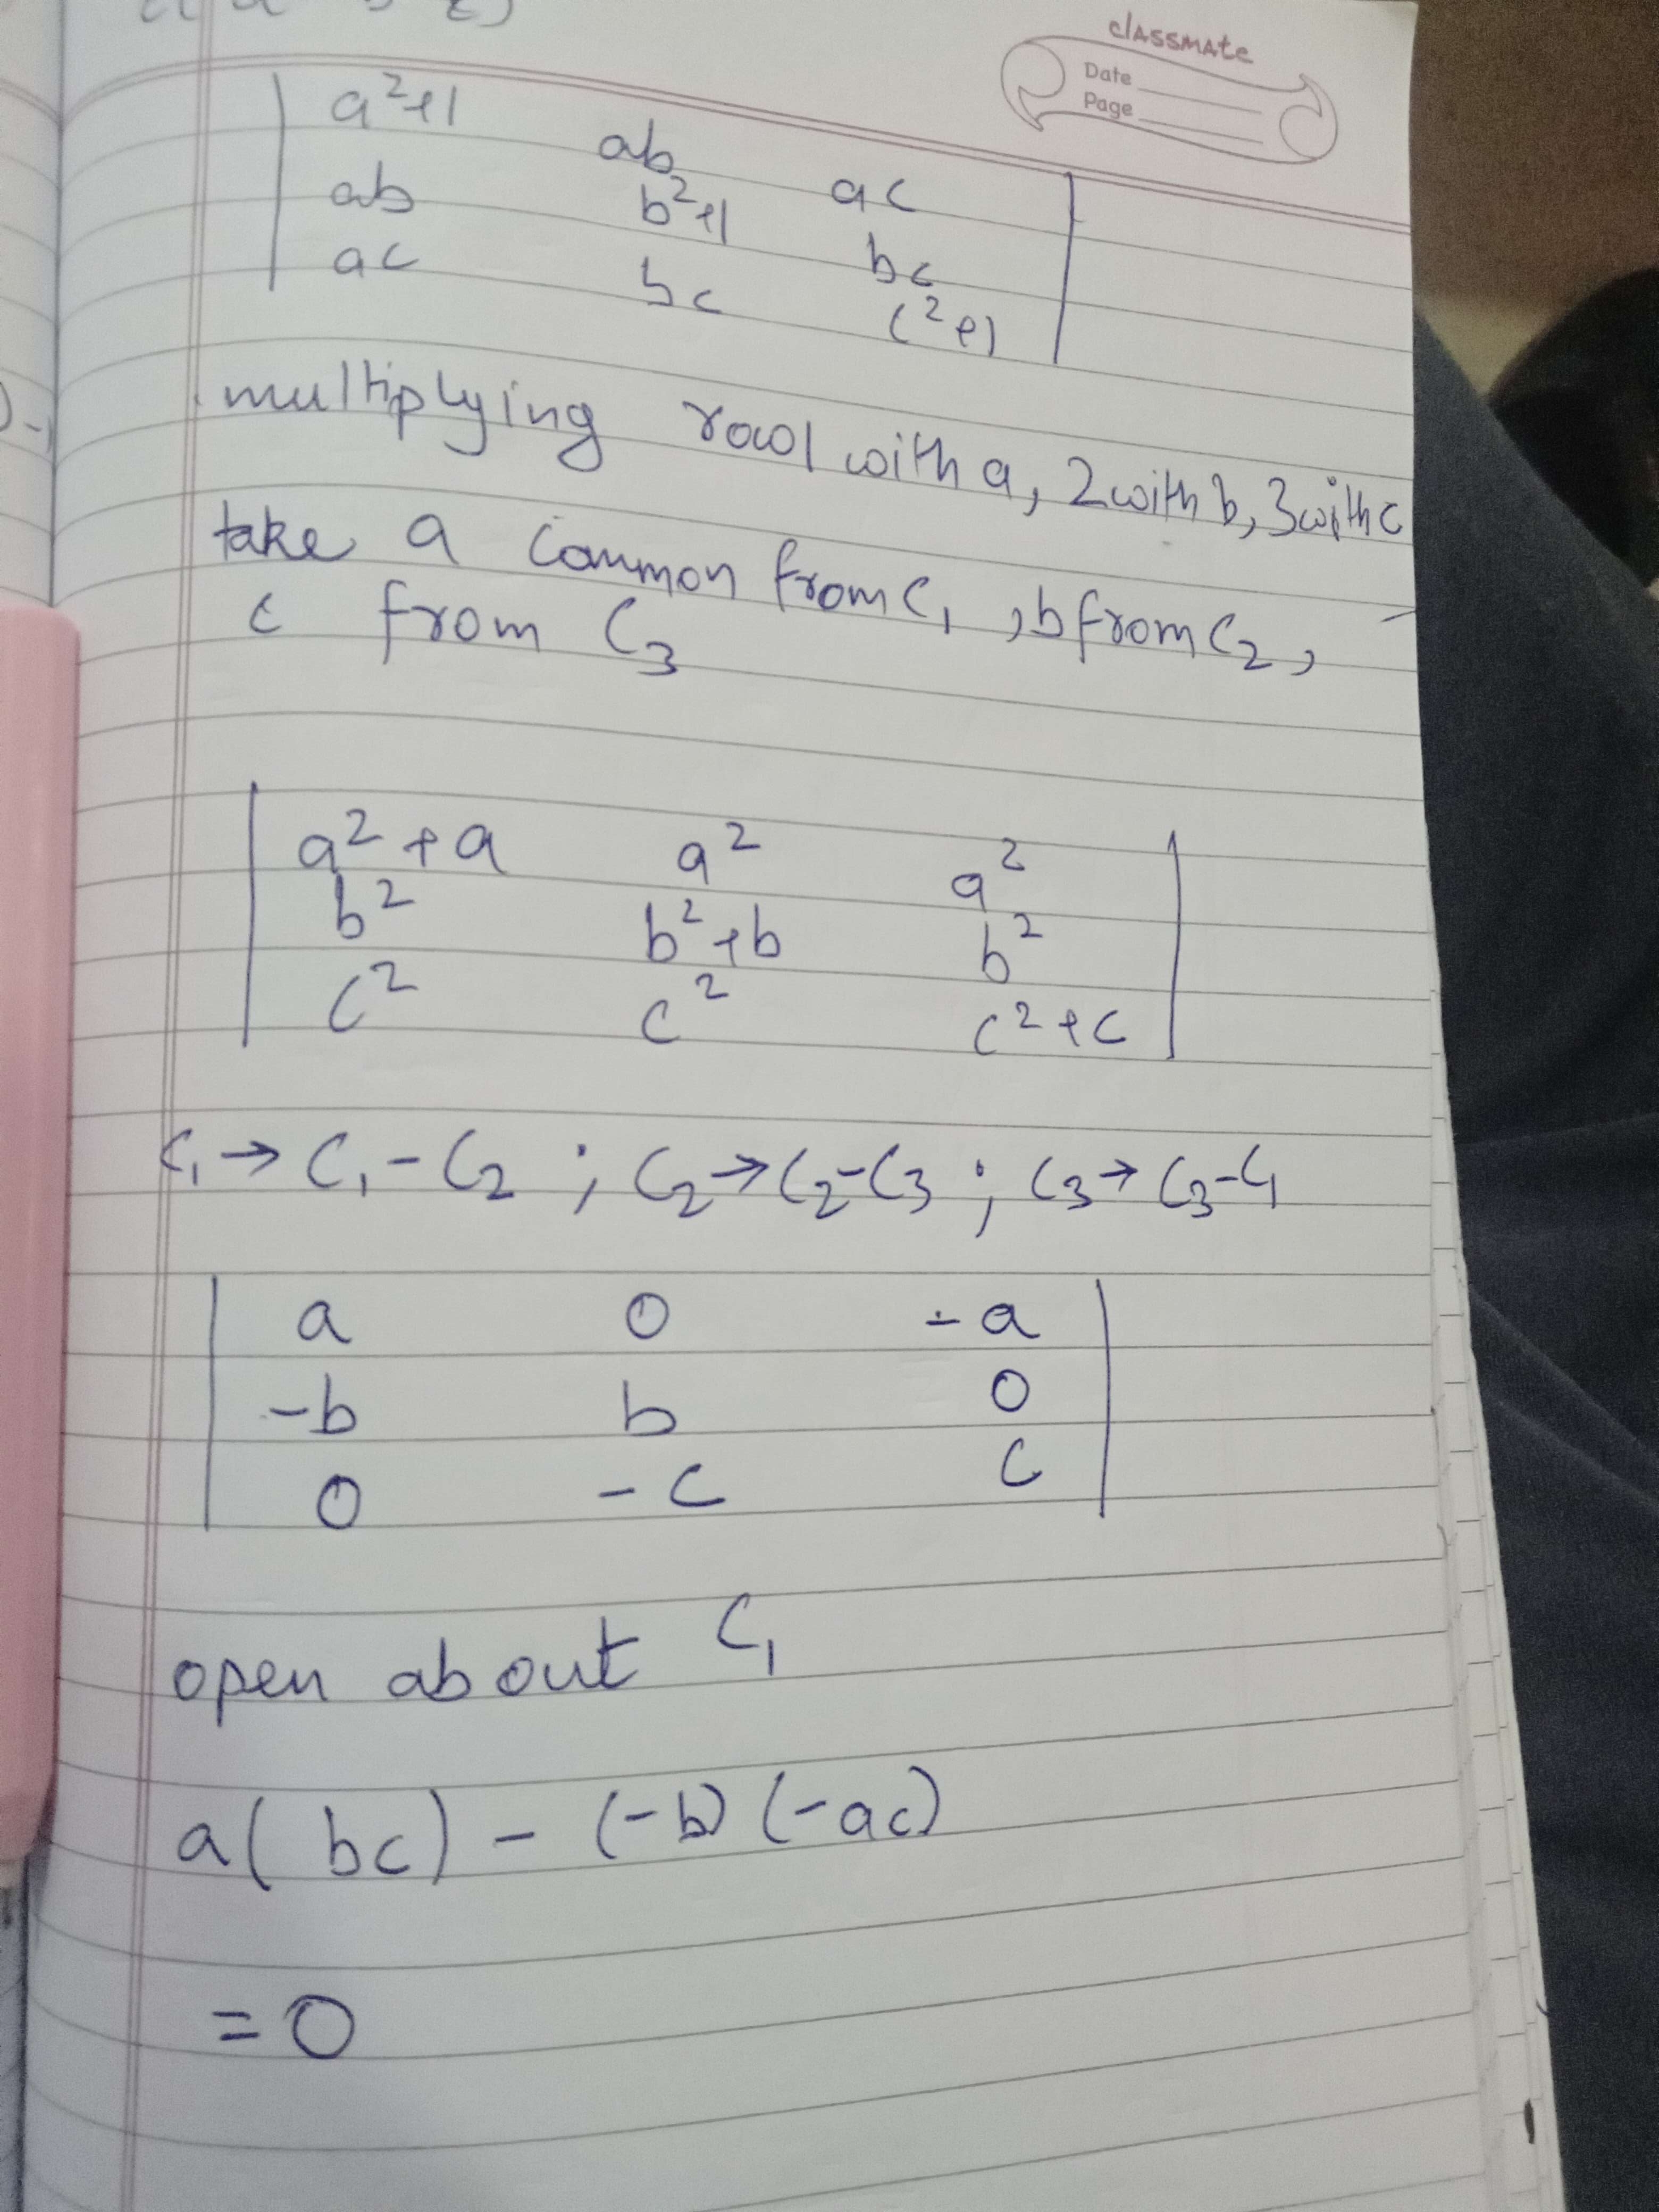 classmate
Date
Page
| a²+1 ab ac |
| ab b²+1 bc |
| ac bc c²+1 |
multiplying row1 with a, 2 with b, 3 with c
take a common from C₁, b from C₂,
c from C₃
| a²+a a² a² |
| b² b²+b b² |
| c² c² c²+c |
C₁→C₁-C₂ ; C₂→C₂-C₃ ; C₃→C₃-C₁
| a 0 -a |
| -b b 0 |
| 0 -c c |
open about C₁
a(bc) - (-b)(-ac)
=0